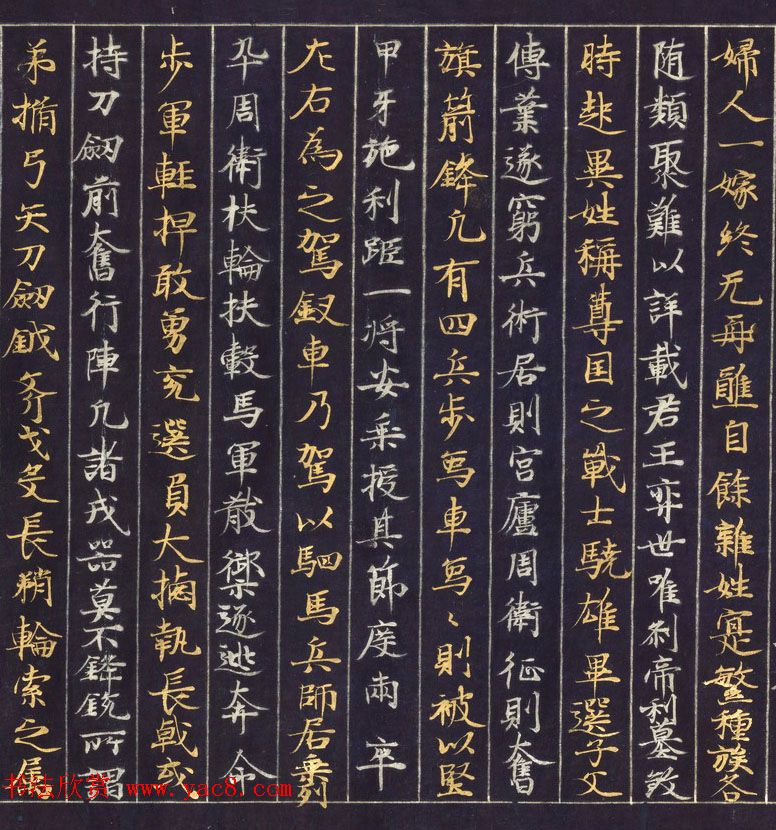 婦人一嫁終无再醮自餘雜姓寔繁種族各
随類聚難以詳載君王弈世唯刹帝利篡弑
時起異姓稱尊国之戰士驍雄畢選子父
傳業遂窮兵術居則宮廬周衛征則奮
旗箭鋒凡有四兵步馬車象〻則被以堅
甲牙施利距一将安乘授其節度兩卒
左右為之駕馭車乃駕以駟馬兵師居乘列
卒周衛扶輪扶轂馬軍散禦逐逃奔命
步軍輕捍敢勇充選負大櫓執長戟或
持刀劔前奮行陣凡諸戎器莫不鋒銳所謂
矛楯弓矢刀劔鉞斧戈殳長矟輪索之屬
书法欣赏 www.yac8.com